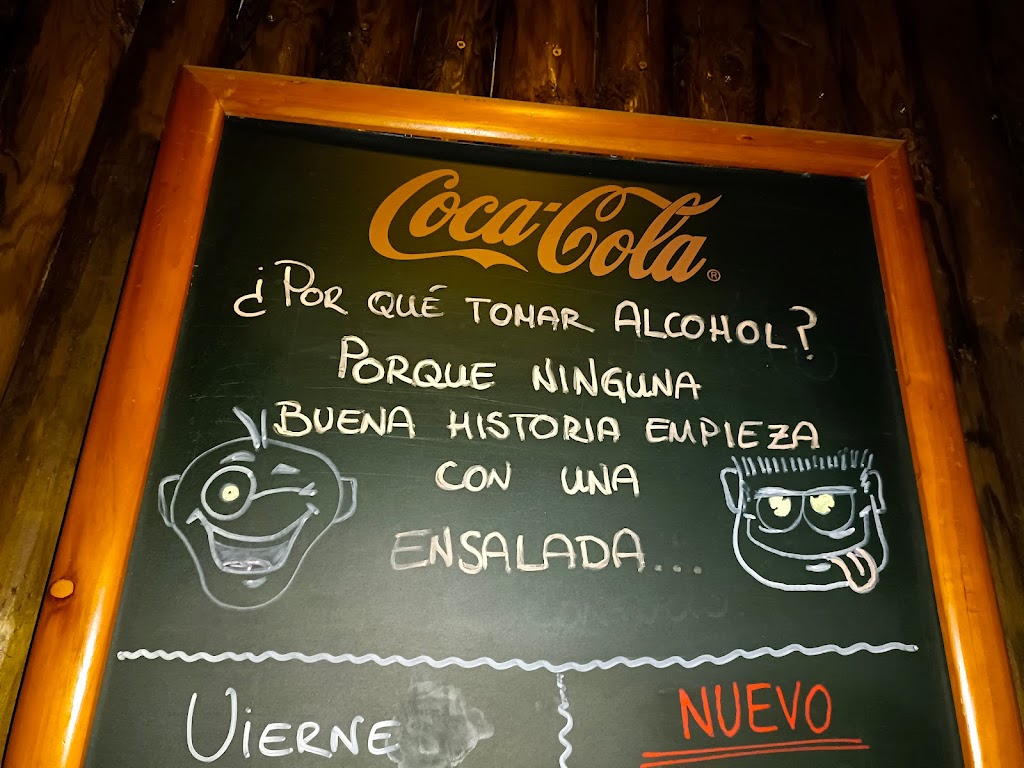 Coca-Cola ®
¿POR QUÉ TOMAR ALCOHOL?
PORQUE NINGUNA
BUENA HISTORIA EMPIEZA
CON UNA
ENSALADA...
VIERNE
NUEVO